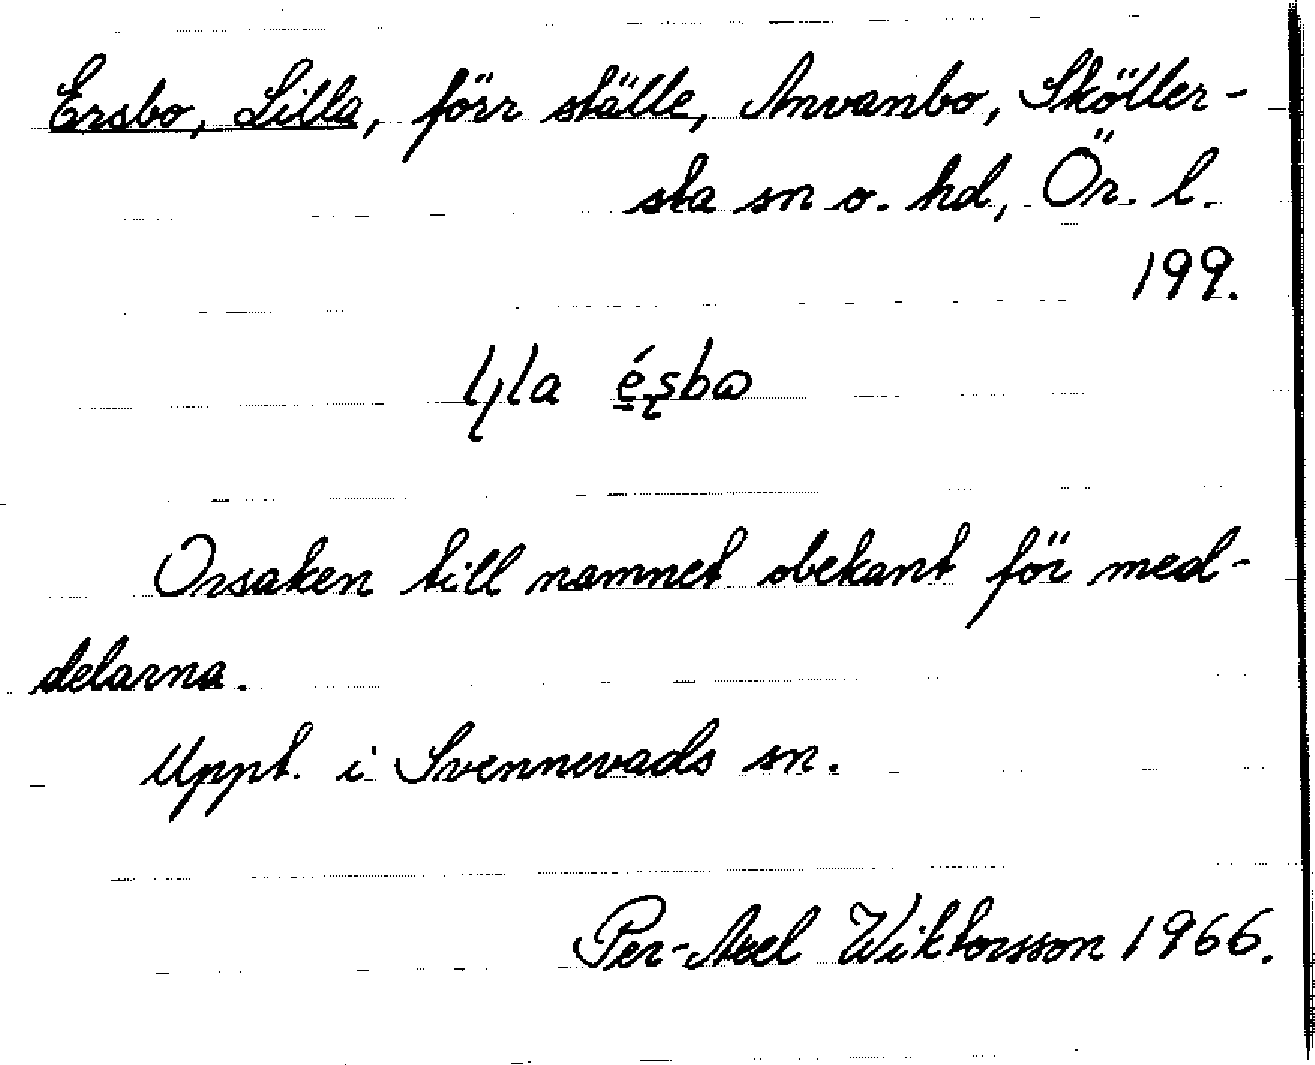 Ersbo, Lilla, förr ställe, Anvanbo, Sköller-
sta sn o. hd, Ör. l.
199.
Orsaken till namnet obekant för med-
delarna.
Uppt. i Svennevads sn.
Per-Axel Wiktorsson 1966.